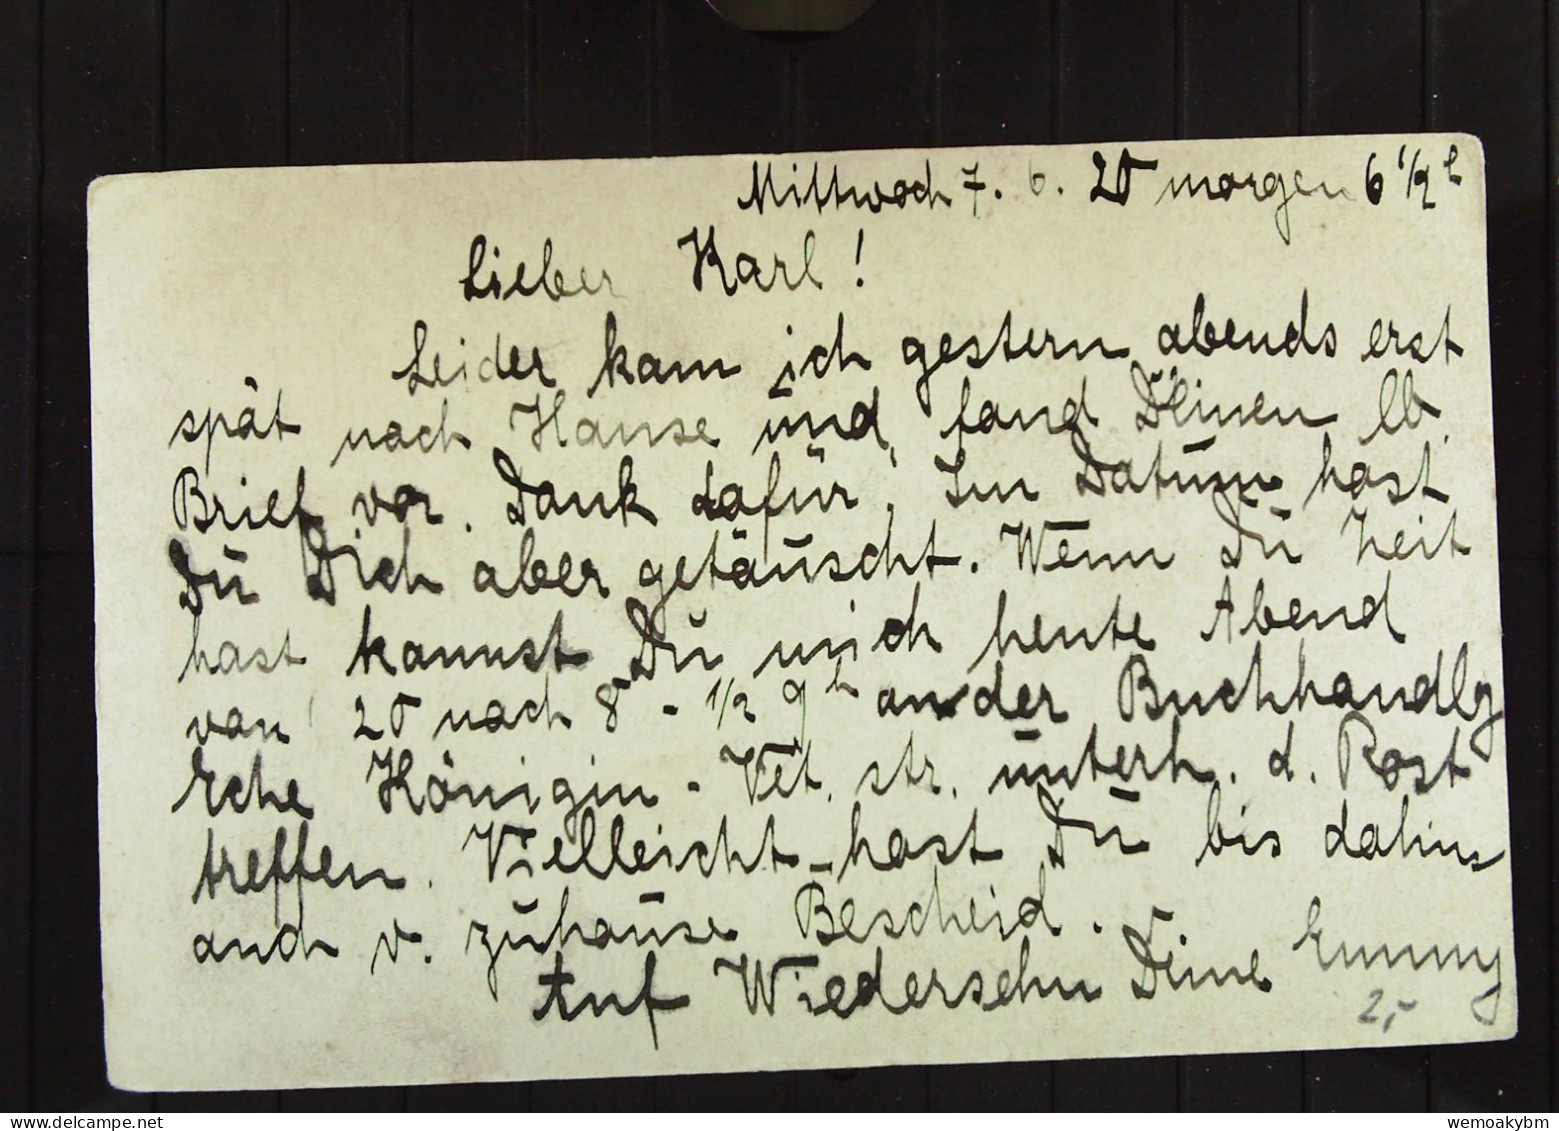 Mittwoch 7. 6. 20 morgen 6 1/2 h
Lieber Karl!
Leider kam ich gestern abends erst
spät nach Hause und fand Deinen lb.
Brief vor. Dank dafür. Im Datum hast
Du Dich aber getäuscht. Wenn Du Zeit
hast kannst Du mich heute Abend
von 20 nach 8 - 1/2 9 h an der Buchhandlg
Ecke Königin - Vikt. str. unterh. d. Post
treffen. Vielleicht hast Du bis dahin
auch v. zuhause Bescheid.
Auf Wiedersehn Deine Emmy
2,-
www.delcampe.net
wemoakybm